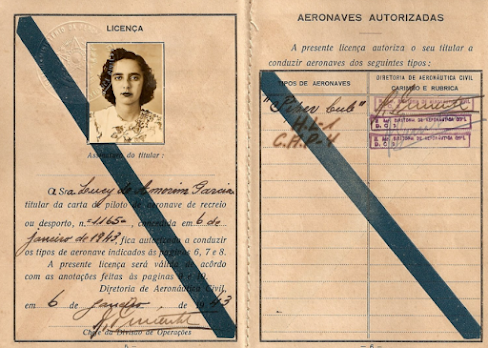 LICENÇA
Assinatura do titular:
O Sra Lucy de Amorim Garcia
titular da carta de piloto de aeronave de recreio
ou desporto, n.º 1165, concedida em 6 de
janeiro de 1943, fica autorizada a conduzir
os tipos de aeronave indicados às paginas 6, 7 e 8.
A presente licença será válida de acôrdo
com as anotações feitas às paginas 9
Diretoria de Aeronáutica Civil,
em 6 de janeiro, de 1943
Chefe da Divisão de Operações
AERONAVES AUTORIZADAS
A presente licença autoriza o seu titular a
conduzir aeronaves dos seguintes tipos:
TIPOS DE AERONAVES
DIRETORIA DE AERONÁUTICA CIVIL
CARIMBO E RUBRICA
"Piper Cub"
H.L-1
C.A.P-4
6